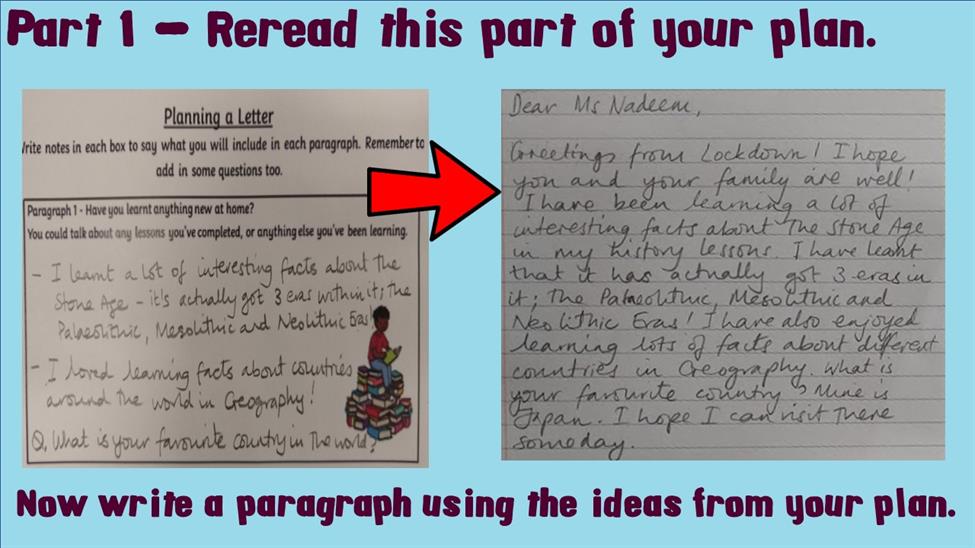 Part 1 – Reread this part of your plan.
Planning a Letter
Write notes in each box to say what you will include in each paragraph. Remember to
add in some questions too.
Paragraph 1 - Have you learnt anything new at home?
You could talk about any lessons you've completed, or anything else you've been learning.
- I learnt a lot of interesting facts about the
Stone Age - it's actually got 3 eras within it; the
Palaeolithic, Mesolithic and Neolithic Eras!
- I loved learning facts about countries
around the world in Geography!
Q. What is your favourite country in the world?
Dear Ms Nadeem,
Greetings from Lockdown! I hope
you and your family are well!
I have been learning a lot of
interesting facts about The Stone Age
in my history lessons. I have learnt
that it has actually got 3 eras in
it; The Palaeolithic, Mesolithic and
Neolithic Eras! I have also enjoyed
learning lots of facts about different
countries in Geography. What is
your favourite country? Mine is
Japan. I hope I can visit there
someday.
Now write a paragraph using the ideas from your plan.